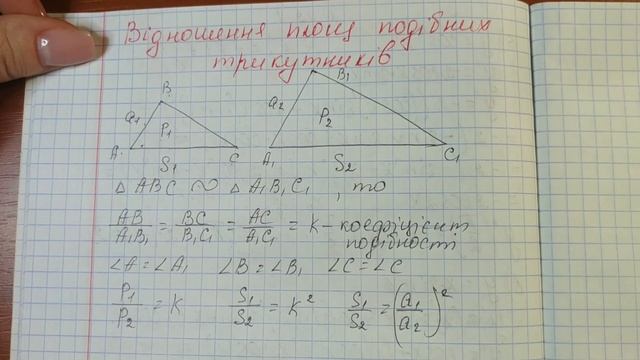 Відношення площ подібних
трикутників
B
B₁
a₁
a₂
P₁
P₂
A
C
A₁
C₁
S₁
S₂
△ ABC ∾ △ A₁B₁C₁, то
AB/A₁B₁ = BC/B₁C₁ = AC/A₁C₁ = K – коефіцієнт
подібності
∠A = ∠A₁ ∠B = ∠B₁ ∠C = ∠C
P₁/P₂ = K S₁/S₂ = K² S₁/S₂ = (a₁/a₂)²